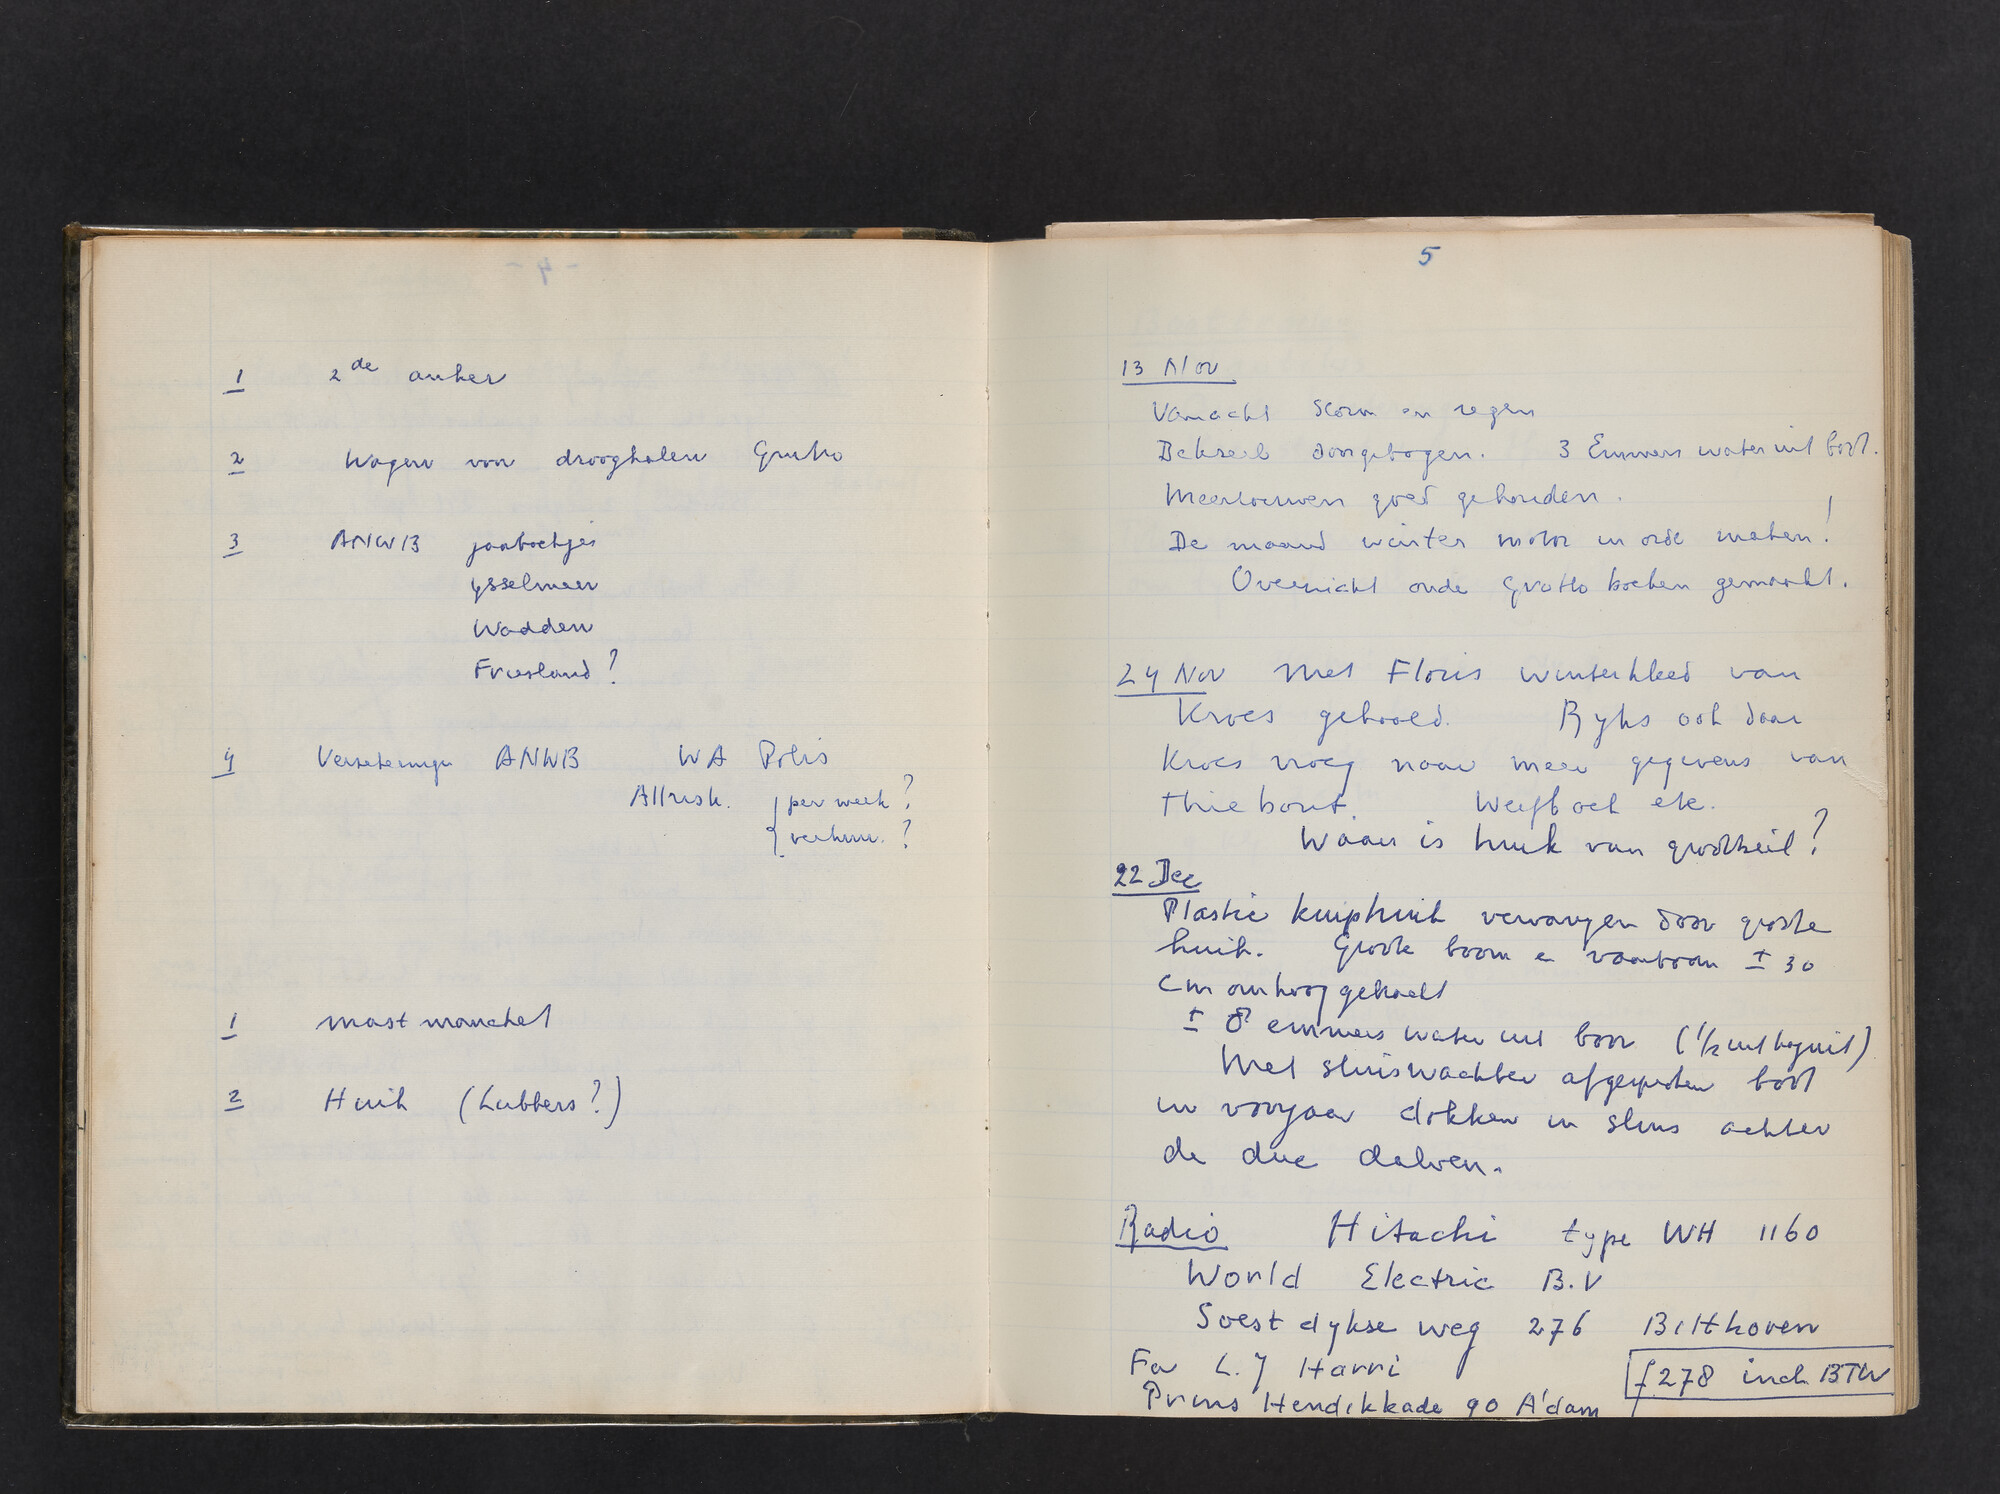 1 2de anker
2 Wagen van drooghalen Grutto
3 ANWB jaarboekjes
Ysselmeer
Wadden
Friesland?
4 Verzekeringen ANWB WA Polis
Allrisk. per week?
verhuur.?
1 mast manchet
2 Huik (Lubbers?)
5
13 Nov
Vannacht storm en regen
Dekzeil doorgebogen. 3 Emmers water uit boot.
Meertouwen goed gehouden.
De maand winter motor in orde maken!
Overzicht oude Grutto boeken gemaakt.
24 Nov Met Floris winterkleed van
Kroes gehaald. Ryks ook daar
Kroes vroeg naar meer gegevens van
Thiebout. Werfboek etc.
Waar is huik van grootzeil?
22 Dec
Plastic kuiphuik vervangen door grote
huik. Grote boom e vaarboom ± 30
cm omhoog gebracht
± 8 emmers water uit boot (1/2 uit kajuit)
Met sluiswachter afgesproken boot
in voorjaar dokken in sluis achter
de drie dolven.
Radio Hitachi type WH 1160
World Electric B.V
Soestdykse weg 276 Bilthoven
Fa L.J Harri f 278 incl. BTW
Prins Hendikkade 90 A'dam